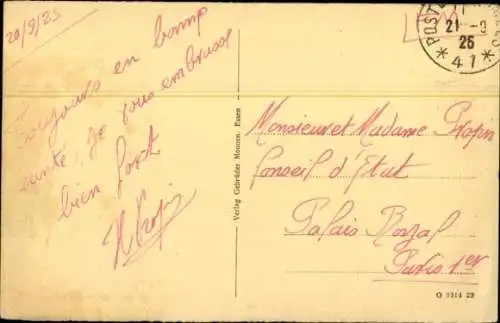 20/9/25
Toujours en bonne
santé, Je vous embrasse
bien fort
Verlag Gebrüder Monnom, Essen
Monsieur et Madame
Conseil d'Etat
Palais Royal
Paris 1er
O 3314 29
21 -9
25
* 47 *